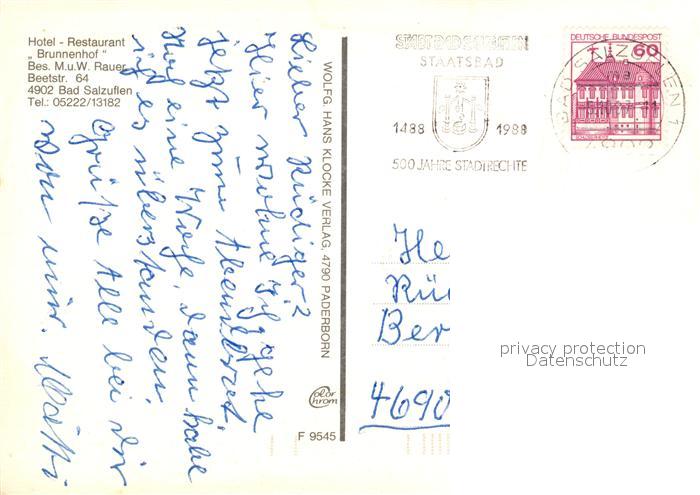 Hotel - Restaurant
„ Brunnenhof "
Bes. M.u.W. Rauer
Beetstr. 64
4902 Bad Salzuflen
Tel.: 05222/13182
Lieber Rüdiger?
Hier wohne ich, gehe
jetzt zum Abendbrot.
Noch eine Woche, dann habe
ich es überstanden.
Grüße Alle bei dir
von mir.
WOLFG. HANS KLOCKE VERLAG, 4790 PADERBORN
color
chrom
F 9545
STADT BAD SALZUFLEN
STAATSBAD
1488 1988
500 JAHRE STADTRECHTE
DEUTSCHE BUNDESPOST
60
BAD SALZUFLEN 1
4902
He
Rü
Ber
4690
privacy protection
Datenschutz